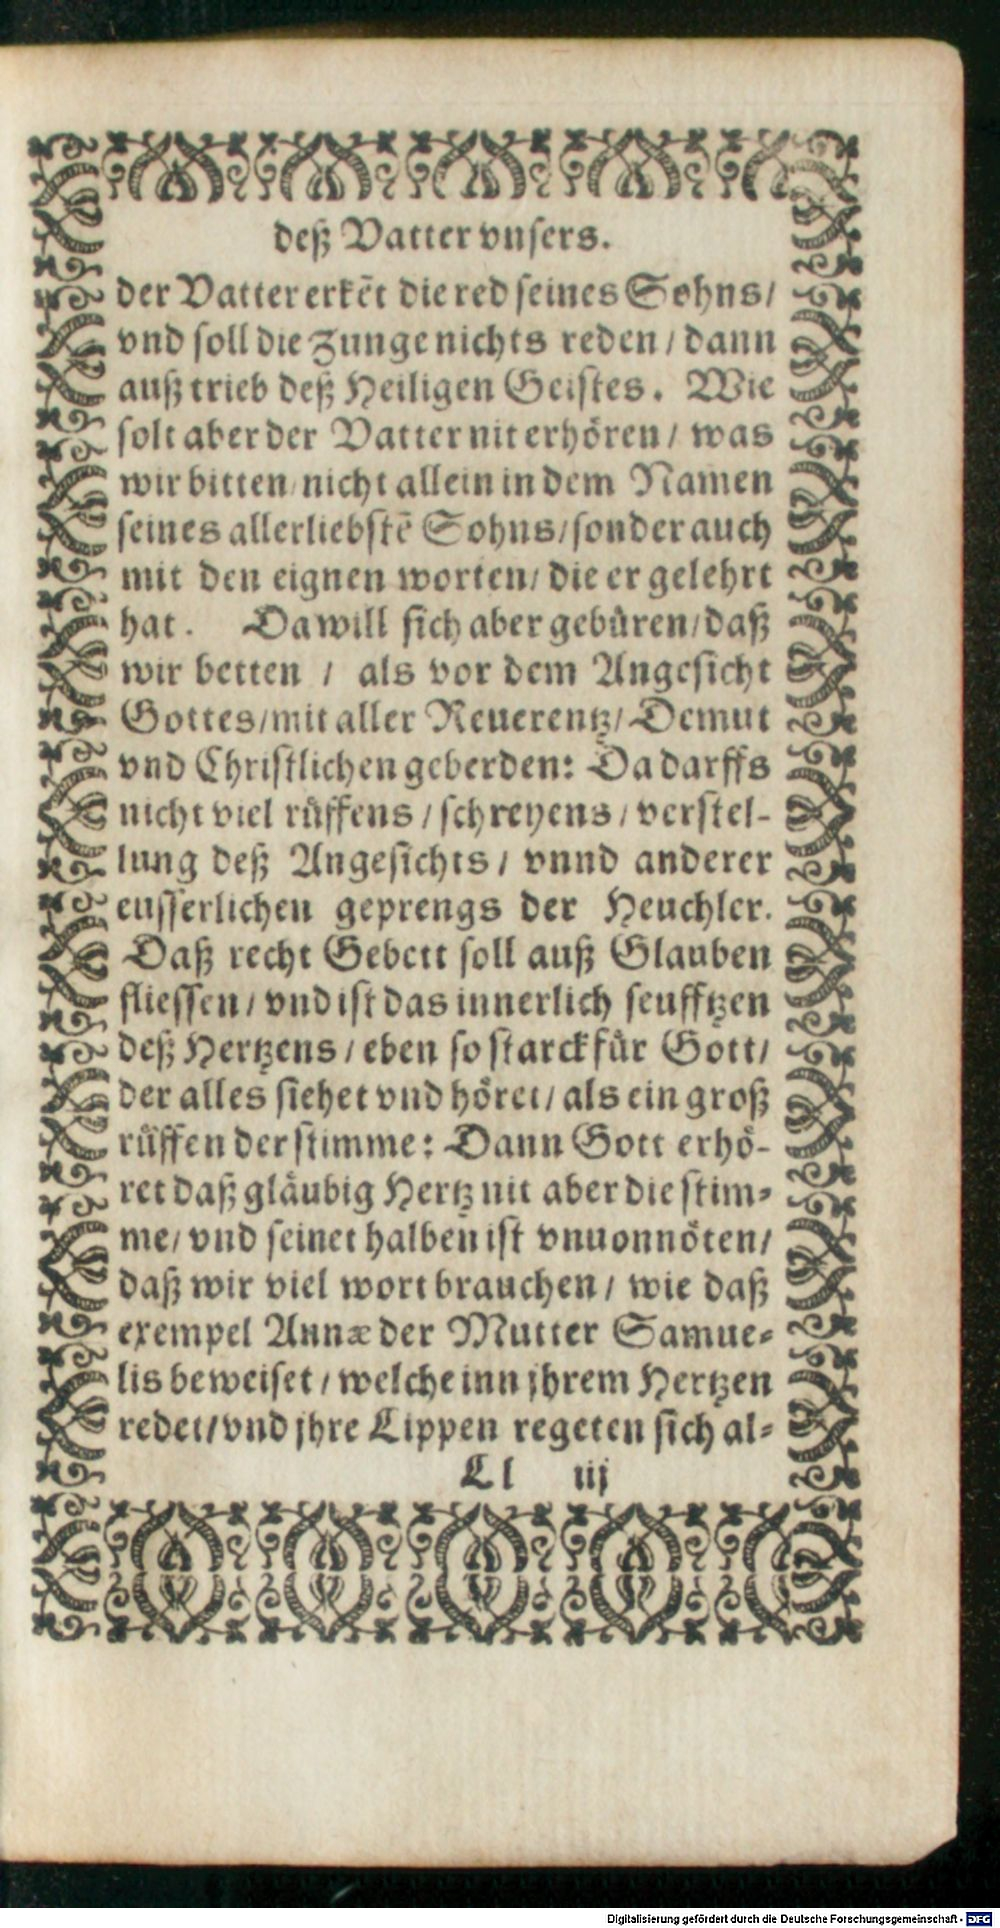 deß Vatter vnsers.
der Vatter erkēt die red seines Sohns/
vnd soll die Zunge nichts reden / dann
auß trieb deß Heiligen Geistes. Wie
solt aber der Vatter nit erhören / was
wir bitten/ nicht allein in dem Namen
seines allerliebstē Sohns/sonder auch
mit den eignen worten/ die er gelehrt
hat. Da will sich aber gebüren/daß
wir betten / als vor dem Angesicht
Gottes/mit aller Reuerentz/ Demut
vnd Christlichen geberden: Da darffs
nicht viel rüffens / schreyens / verstel-
lung deß Angesichts / vnnd anderer
eusserlichen geprengs der Heuchler.
Daß recht Gebett soll auß Glauben
fliessen / vnd ist das innerlich seufftzen
deß Hertzens / eben so starck für Gott/
der alles siehet vnd höret/ als ein groß
rüffen der stimme: Dann Gott erhö-
ret daß gläubig Hertz nit aber die stim-
me/ vnd seinet halben ist vnuonnöten/
daß wir viel wort brauchen / wie daß
exempel Annæ der Mutter Samue-
lis beweiset / welche inn jhrem Hertzen
redet/vnd jhre Lippen regeten sich al-
Ll iij
Digitalisierung gefördert durch die Deutsche Forschungsgemeinschaft - DFG